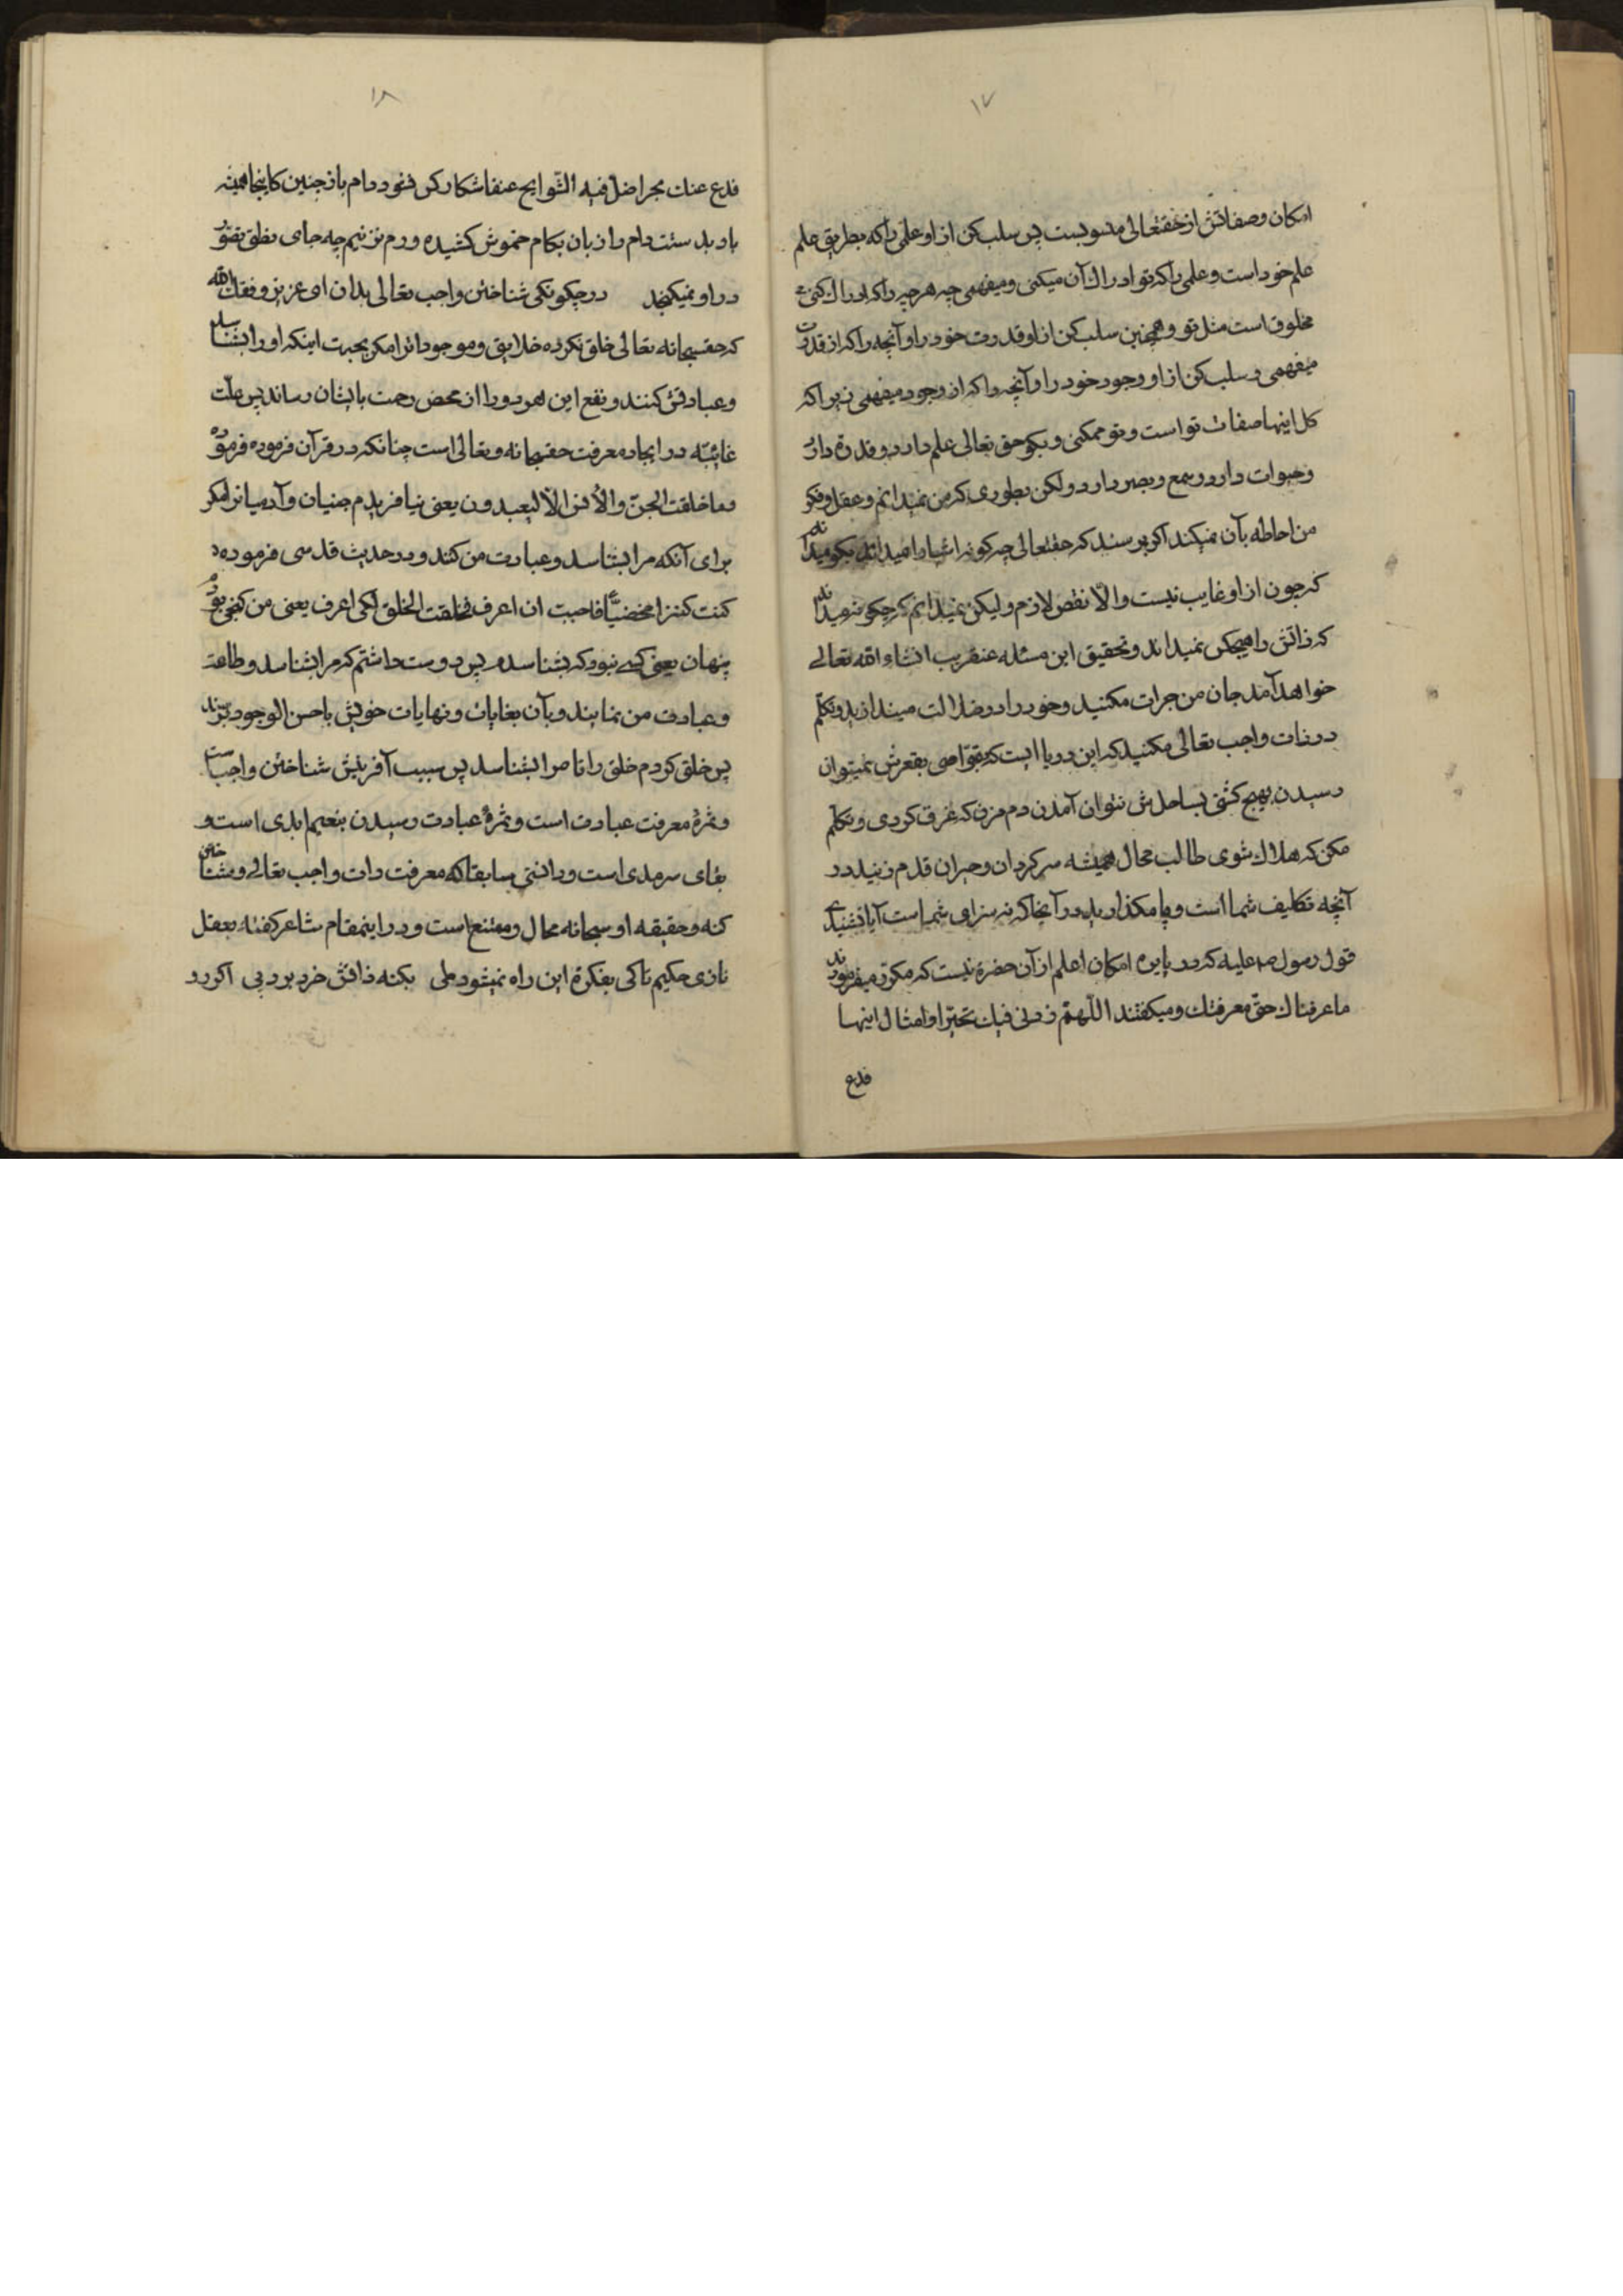 ۱۷
امکان وصفاتش از حقتعالی مسلوبست پس سلب کن از او علمی را که بطریق علم
علم خود است و علمی را که تو ادراك آن میکنی و میفهمی چه هر چیز را که ادراك کنی
مخلوق است مثل تو و همچنین سلب کن از او قدرت خود را و آنچه را که از قدرت
میفهمی و سلب کن از او وجود خود را و آنچه را که از وجود میفهمی زیرا که
کل اینها صفات تو است و تو ممکنی و بکو حق تعالی علم دارد و قدرة دارد
و حیوات دارد و سمع و بصر دارد و لکن بطوری که من نمیدانم و عقل و فکر
من احاطه بآن نمیکند اکر پرسند که حقتعالی چه کونه اشیا را میداند بکو میداند
که چون از او غایب نیست و الّا نقص لازم و لیکن نمیدانم که چکونه میداند
که ذاتش را هیچکس نمیداند و تحقیق این مسئله عنقریب انشاء الله تعالی
خواهد آمد جان من جرات مکنید و خود را در ضلالت میندازید و تکلّم
در ذات واجب تعالی مکنید که این دریا ایست که بغوّاصی بقعرش نمیتوان
رسیدن بهیچ کشتی بساحلش نتوان آمدن دم مزن که غرق کردی و تکلّم
مکن که هلاك شوی طالب محال همیشه سرکردان و حیران قدم زنید در
آنچه تکلیف شما است و پا مکذارید در آنجا که نه سزای شما است آیا نشنیدی
قول رسول ص علیه که در دایره امکان اعلم از آن حضرة نیست که مکرّر میفرمودند
ما عرفناك حقّ معرفتك و میکفتند اللّهمّ زدنی فیك تحیّرا و امثال اینها
فدع
۱۸
فدع عنك بحرا ضلّ فیه السّوابح عنقا شکار کس نشود دام باز چین کاینجا همیشه
باد بدست است دام را زبان بکام خموش کشیده و دم نزنیم چه جای نطق تصوّر
در او نمیکنجد در چکونکی شناختن واجب تعالی بدان ای عزیز وفقك الله
که حقسبحانه تعالی خلق نکرده خلایق و موجودات را مکر بجهت اینکه او را بشناسند
و عبادتش کنند و نفع این هر دو را از محض رحمت بایشان رساند پس علّت
غائیّه در ایجاد معرفت حقسبحانه و تعالی است چنانکه در قرآن فرموده فرموده
وما خلقت الجنّ والأنس الّا لیعبدون یعنی نیافریدم جنیان و آدمیانرا مکر
برای آنکه مرا بشناسند و عبادت من کنند و در حدیث قدسی فرموده
کنت کنزا مخفیّاً فاحببت ان اعرف فخلقت الخلق لکی اعرف یعنی من کنجی بودم
پنهان یعنی کسی نبود که بشناسدم پس دوست داشتم که مرا بشناسند و طاعت
و عبادت من نمایند و بآن بغایات و نهایات خویش باحسن الوجود برسند
پس خلق کردم خلق را تا مرا بشناسند پس سبب آفرینش شناختن واجب است
و ثمرۀ معرفت عبادت است و ثمرۀ عبادت رسیدن بنعیم ابدی است و
بقای سرمدی است و دانستی سابقا که معرفت ذات واجب تعالی و شناختن
کنه و حقیقه او سبحانه محال و ممتنع است و در اینمقام شاعر کفته بعقل
نازی حکیم تا کی بفکرة این راه نمیشود طی بکنه ذاتش خرد برد پی اکر رد